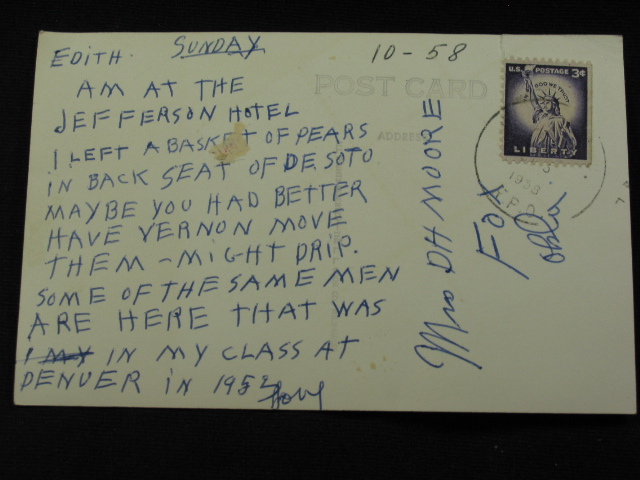 EDITH. SUNDAY
10-58
AM AT THE
JEFFERSON HOTEL
I LEFT A BASKET OF PEARS
IN BACK SEAT OF DE SOTO
MAYBE YOU HAD BETTER
HAVE VERNON MOVE
THEM - MIGHT DRIP.
SOME OF THE SAME MEN
ARE HERE THAT WAS
I MY IN MY CLASS AT
DENVER IN 1952
POST CARD
ADDRESS
Mrs DH MOORE
Fox
Okla
U.S. POSTAGE 3¢
IN GOD WE TRUST
LIBERTY
1958